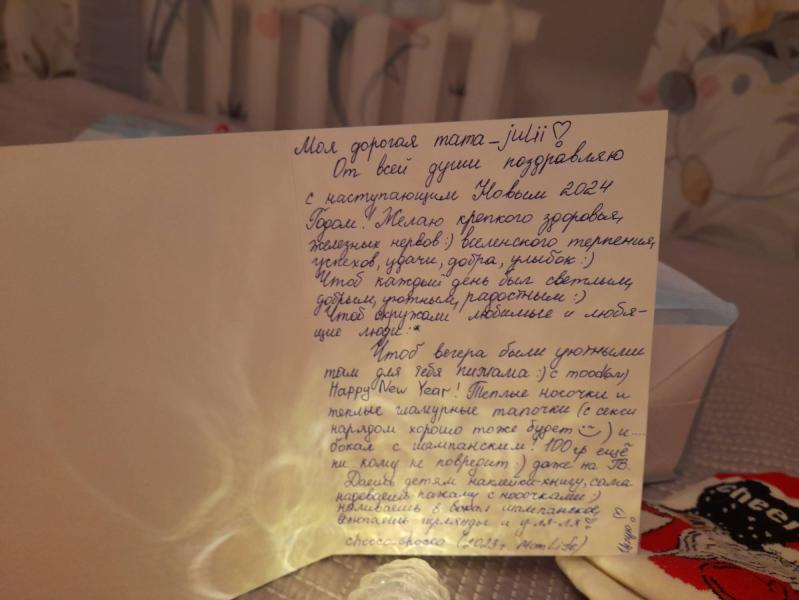 Моя дорогая тата_julii♡
От всей души поздравляю
с наступающим Новым 2024
Годом! Желаю крепкого здоровья,
железных нервов:) вселенского терпения,
успехов, удачи, добра, улыбок:)
Чтоб каждый день был светлым,
добрым, уютным, радостным:)
Чтоб окружали любимые и любя-
щие люди:*
Чтоб вечера были уютными
там для тебя пижама:) с
Happy New Year! Теплые носочки и
теплые гламурные тапочки (с секси
нарядом хорошо тоже будет) и....
бокал с шампанским! 100гр ещё
ни кому не повредит:) даже на ГВ.
Даешь детям наклейки-книгу, сама
надеваешь пижаму с носочками:)
наливаешь в бокал шампанское,
включаешь гирлянды и у-ля-ля
choco_ (2023г. MomLife)
Целую!♡
cheer